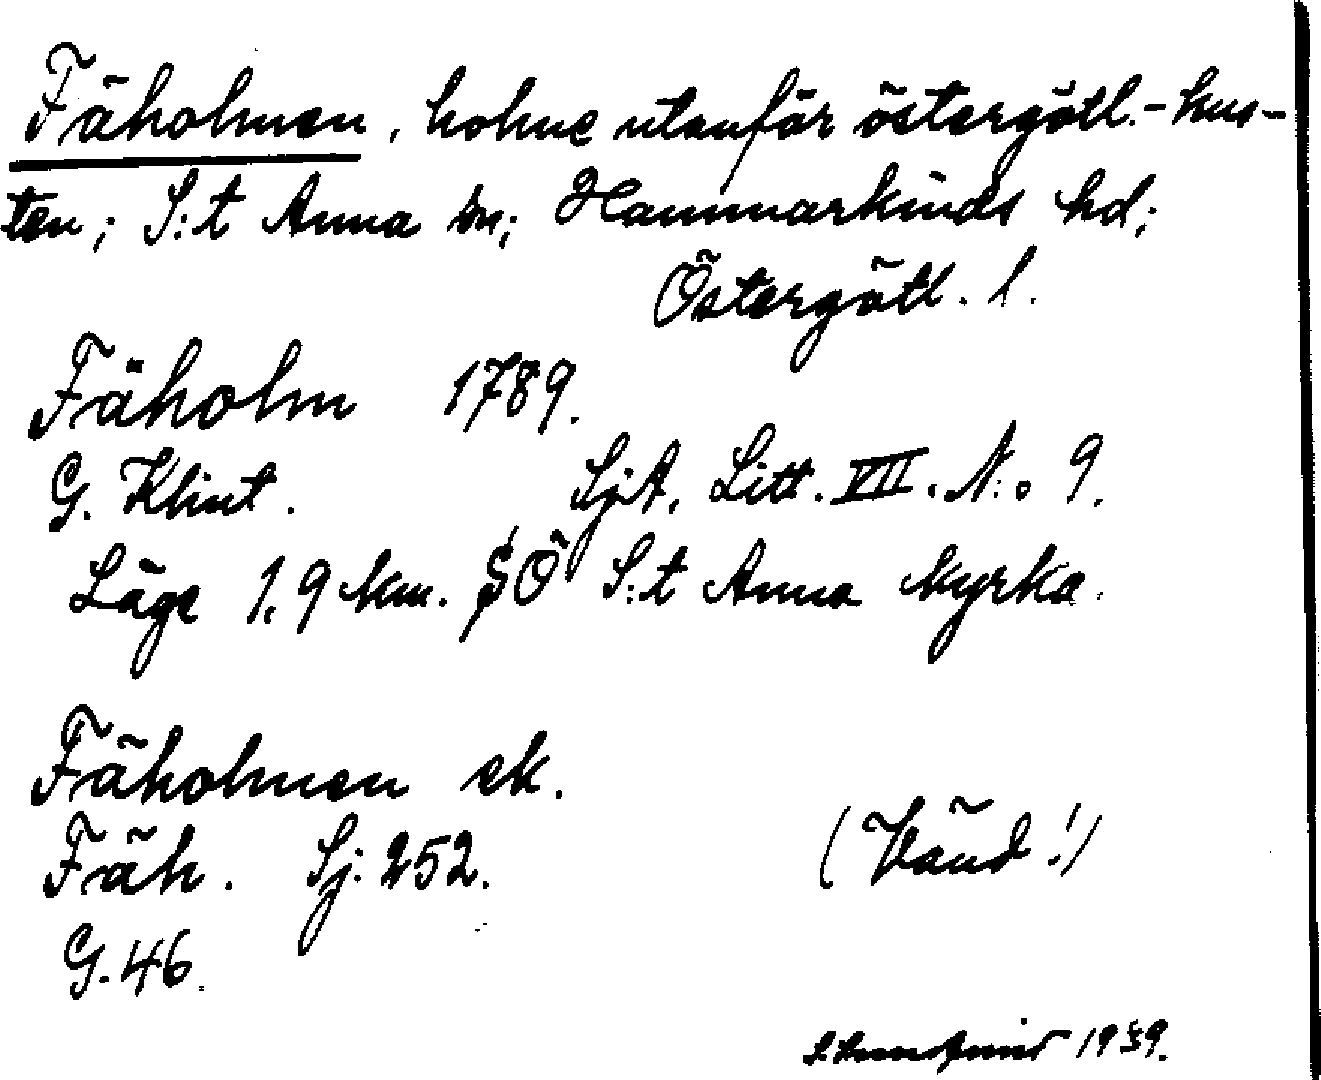 Fäholmen, holme utanför östergötl.-kus-
ten; S:t Anna sn; Hammarkinds hd;
Östergötl. l.
Fäholm 1789.
G. Klint. SjA, Litt. VII. N:o 9.
Läge 1,9 km. SÖ S:t Anna kyrka.
Fäholmen ek.
Fäh. Sj. 252. (Vänd!)
G. 46.
1939.